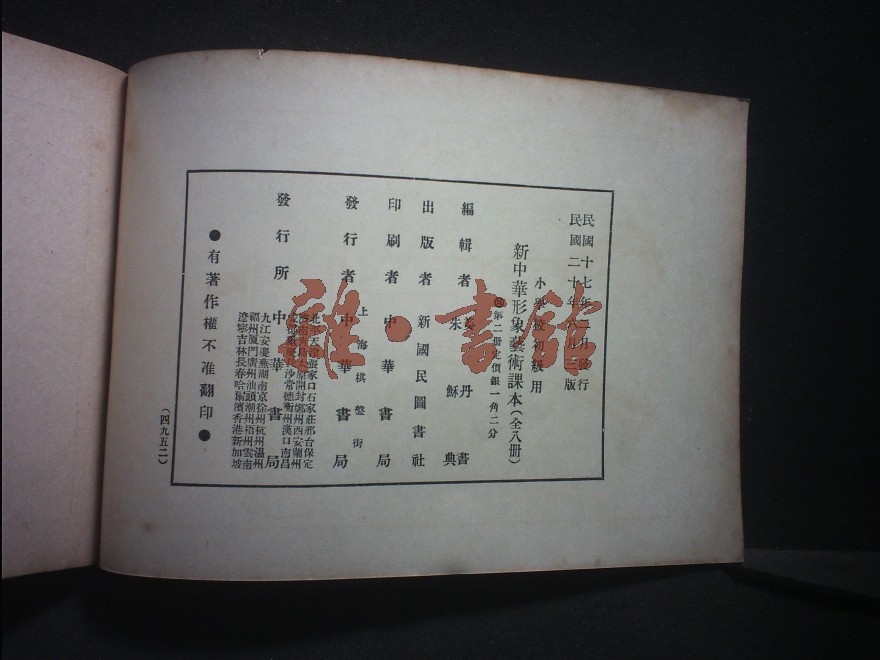 民國十七年二月發行
民國二十年六月三版
小學校初級用
新中華形象藝術課本(全八冊)
第二冊定價銀一角二分
編輯者 姜丹書
朱穌典
出版者 新國民圖書社
印刷者 中華書局
上海棋盤街
發行者 中華書局
北平天津張家口石家莊邢台保定
太原開封鄭州西安蘭州
長沙常德衡州漢口南昌
發行所 中華書局
九江安慶蕪湖南京徐州杭州温州
福州厦門廣州汕頭潮州梧州雲南
遼寧吉林長春哈爾濱香港新加坡
●有著作權不准翻印●
(四九五二)
雜·書館